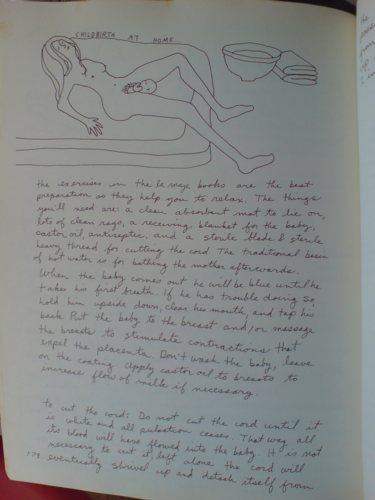 CHILDBIRTH AT HOME
the exercises in the la maze books are the best
preparation as they help you to relax. The things
you'll need are: a clean absorbent mat to lie on,
lots of clean rags, a receiving blanket for the baby,
castor oil, antiseptic, and a sterile blade & sterile
heavy thread for cutting the cord. The traditional basin
of hot water is for bathing the mother afterwards.
When the baby comes out he will be blue until he
takes his first breath. If he has trouble doing so,
hold him upside down, clear his mouth, and tap his
back. Put the baby to the breast and/or massage
the breasts to stimulate contractions that
expel the placenta. Don't wash the baby, leave
on the coating. Apply castor oil to breasts to
increase flow of milk if necessary.
to cut the cord: Do not cut the cord until it
is white and all pulsation ceases. That way all
its blood will have flowed into the baby. It is not
necessary to cut it, left alone the cord will
eventually shrivel up and detach itself from